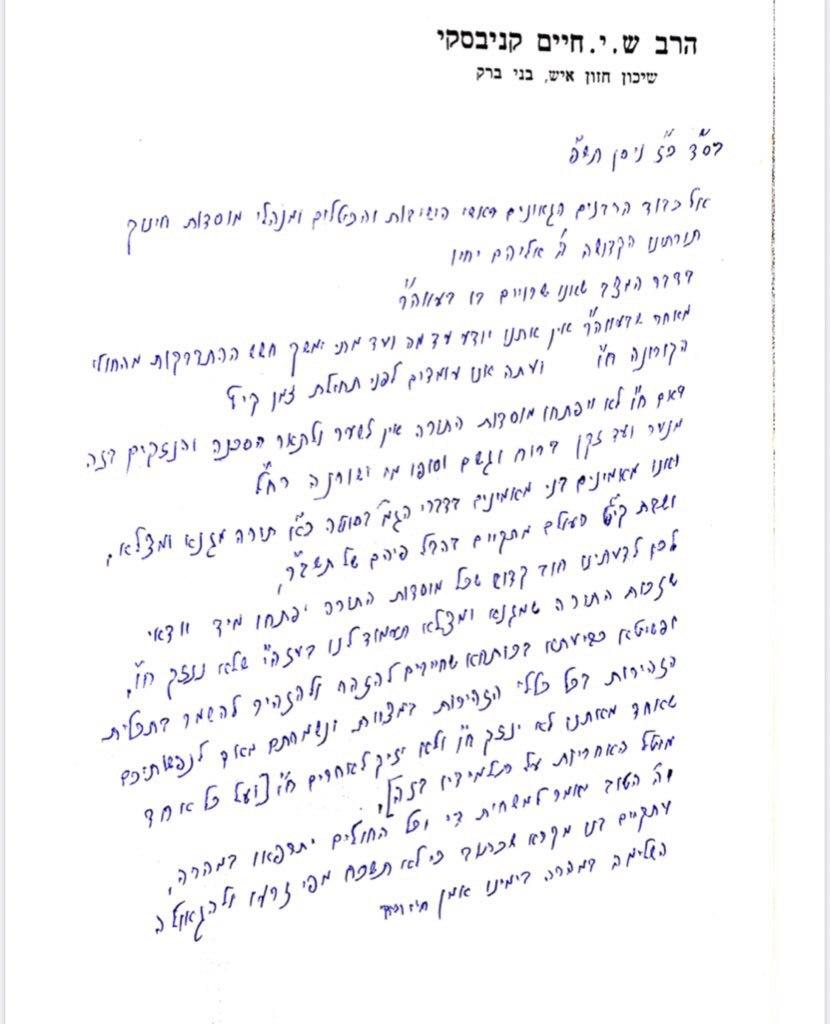 הרב ש.י.חיים קניבסקי
שיכון חזון איש, בני ברק
בס"ד כ"ז ניסן תש"פ
אל כבוד הרבנים הגאונים ראשי הישיבות והכוללים ומנהלי מוסדות חינוך
תורתינו הקדושה ה' אליהם יחיו
בדבר המצב שאנו שרויים בו בעווה"ר
מאחר שבעווה"ר אין אתנו יודע עד מה ועד מתי ימשך חשש ההתדבקות מהחולי
הקורונה ח"ו ועתה אנו עומדים לפני תחילת זמן קיץ
דאם ח"ו לא ייפתחו מוסדות התורה אין לשער ולתאר הסכנה והנזקים בזה
מנער ועד זקן ברוח וגשם וסופו מי ישורנה רח"ל
ואנו מאמינים בני מאמינים בדברי הגמ' בסוטה כ"א תורה מגנא ומצלא,
ושבת קי"ט העולם מתקיים בהבל פיהם של תשב"ר,
לכן לדעתינו חוב קדוש שכל מוסדות התורה יפתחו מיד וודאי
שזכות התורה שמגנא ומצלא תעמוד לנו בעזה"י שלא ננזק ח"ו,
ופשיטא כביעתא בכותחא שחייבים להזהר ולהזהיר להשמר בתכלית
הזהירות בכל כללי הזהירות במצוות ונשמרתם מאד לנפשותיכם
שאחד מאתנו לא ינזק ח"ו ולא יזיק לאחרים ח"ו [ועל כל אחד
מוטל האחריות על תלמידיו בזה],
וה' הטוב יאמר למשחית די וכל החולים יתרפאו במהרה,
ותקיים בנו מקרא שכתוב כי לא תשכח מפי זרעו ולהגאולה
השלימה במהרה בימינו אמן